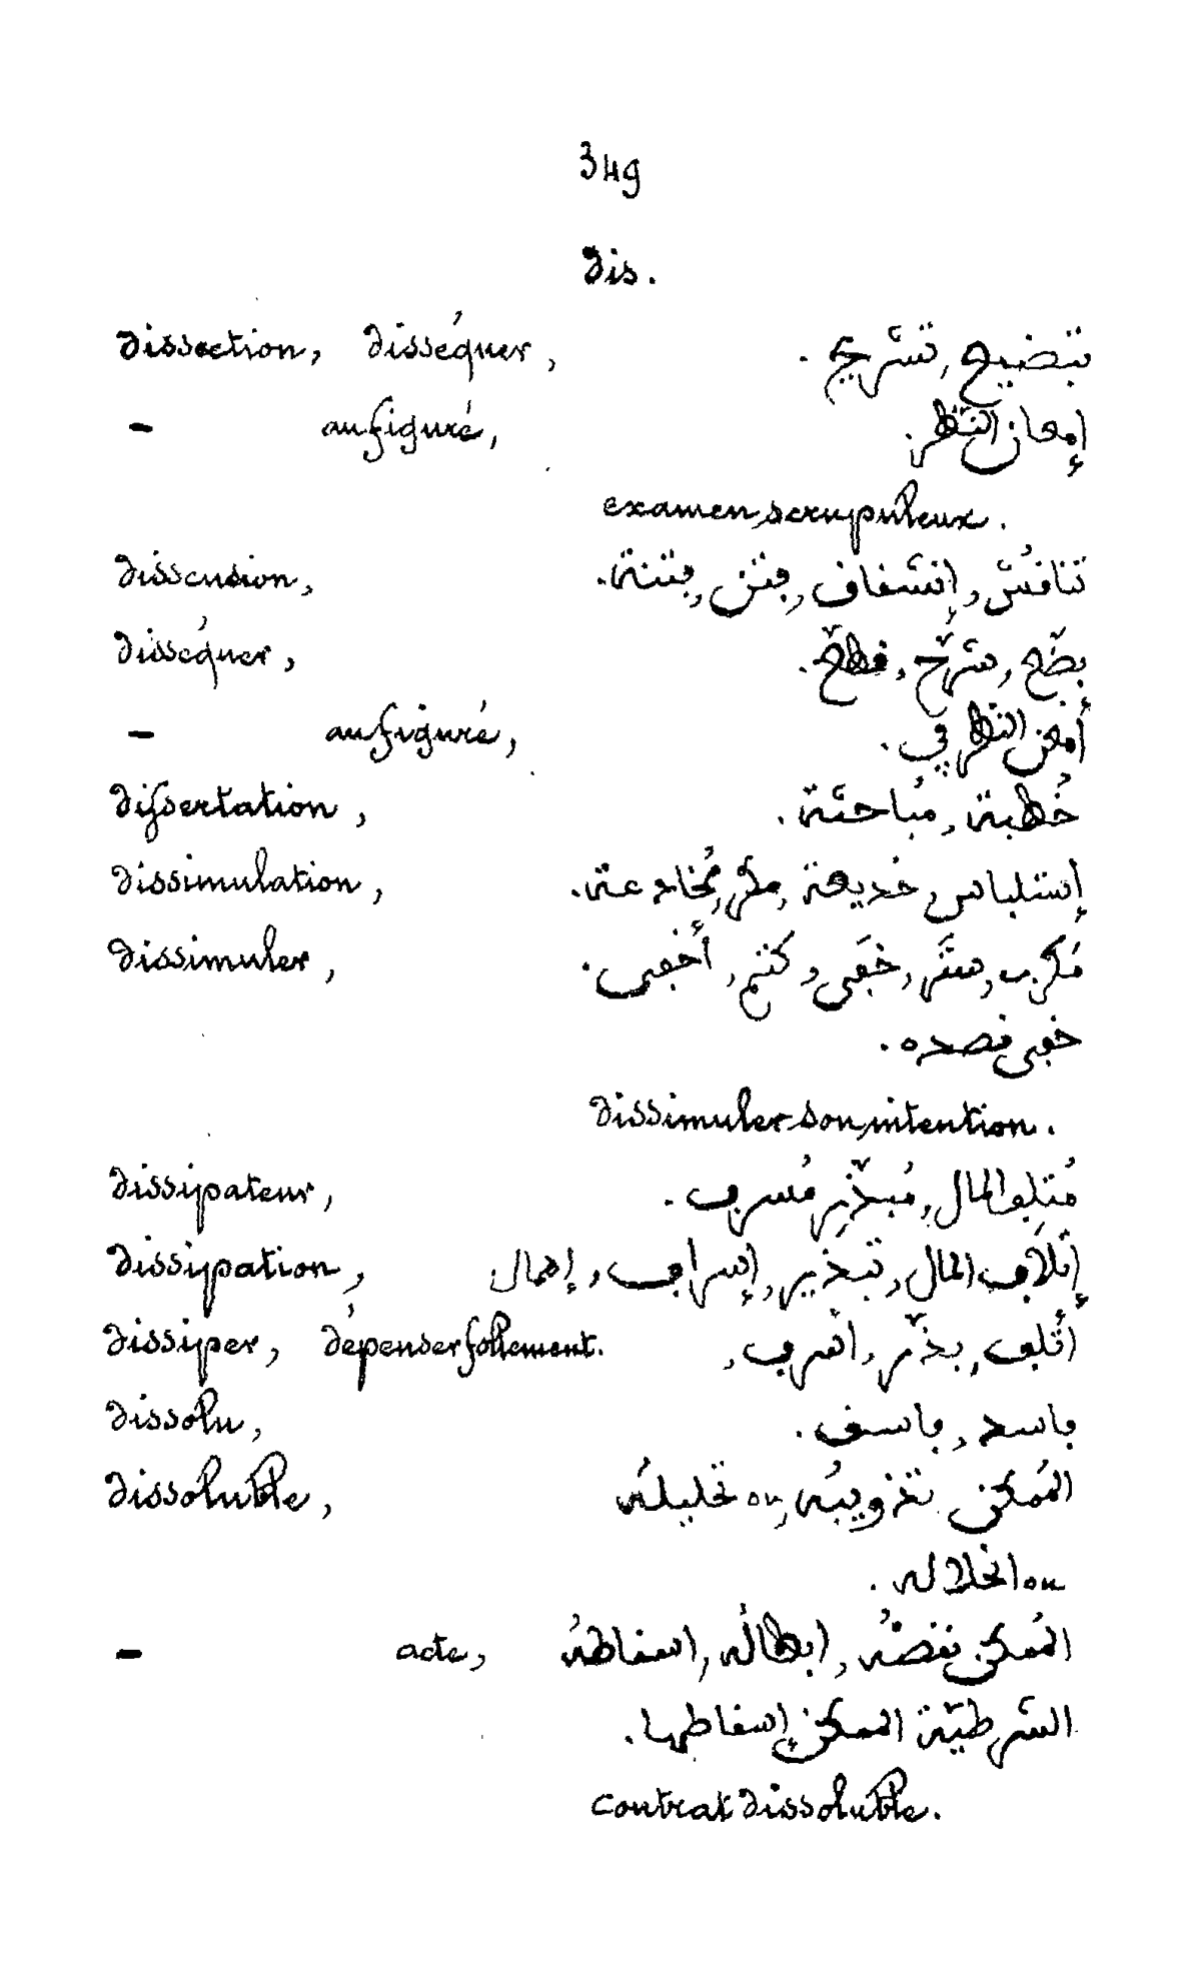 349
dis.
dissection, disséquer, تبضيع, تشريح.
- au figuré, إمعان النّظر.
examen scrupuleux.
dissension, تنافُسٌ, إنشقاق, فتن, فتنة.
disséquer, بضّع, شرّح, قطّع.
- au figuré, أمعن النّظر في.
dissertation, خُطبة, مُباحثة.
dissimulation, إستلباس, خديعة, مكر, مُخادعة.
dissimuler, مَكَر ب, ستَر, خَفَى, كتم, أخفى.
خفى قصده.
dissimuler son intention.
dissipateur, مُتلِف المال, مُبذّر, مُسرف.
dissipation, إتلاف المال, تبذير, إسراف, إهمال
dissiper, dépenser follement. أتلف, بذّر, اسرف,
dissolu, فاسد, فاسق.
dissoluble, المُمكن تذويبُه, ou تحليلُه
ou انحلاله.
- acte, المُمكن نقضُه, ابطالُه, اسقاطهُ
الشّرطيّة الممكن إسقاطها.
contrat dissoluble.